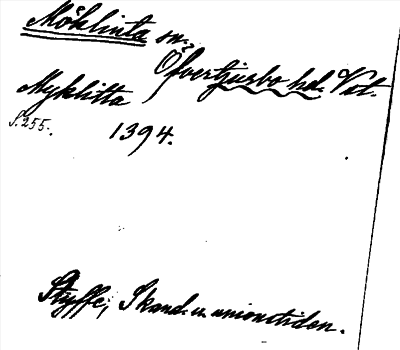 Möklinta sn.
Öfvertjurbo hd. Vst.
Myklitta
S. 255. 1394.
Styffe, Skand. u. unionstiden.